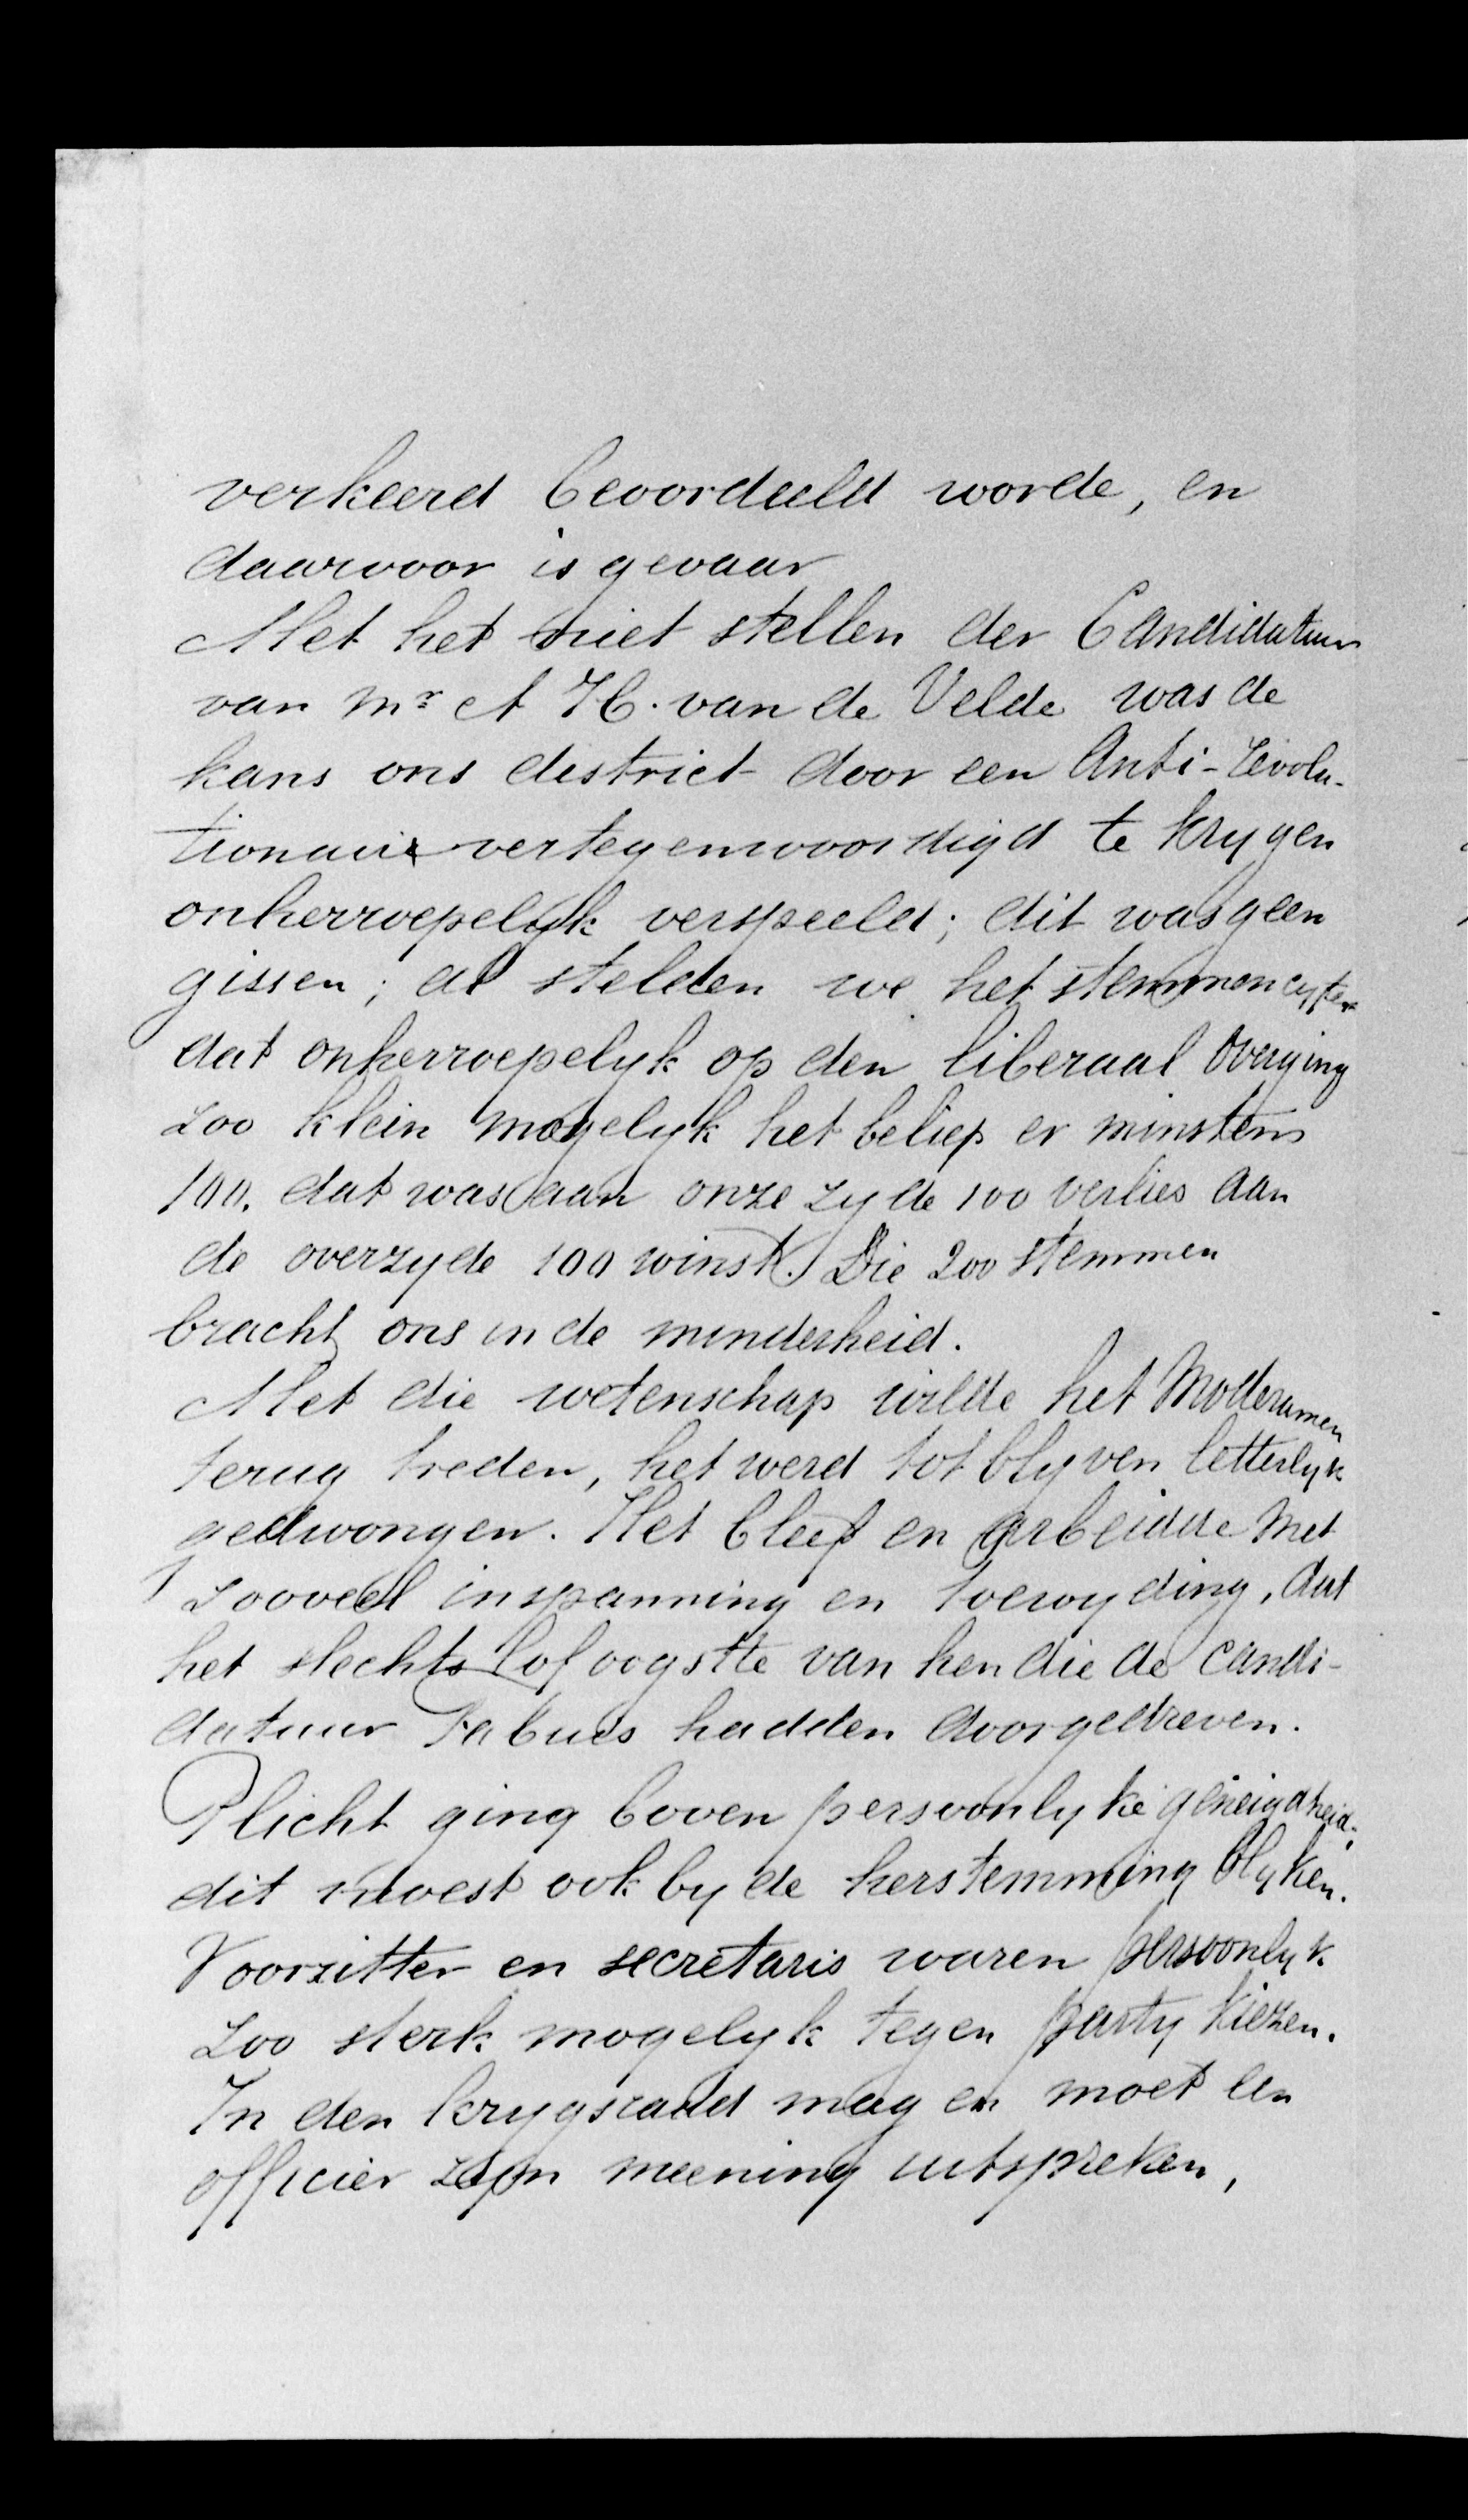 verkeerd beoordeeld worde, en
daarvoor is gevaar
Met het niet stellen der Candidatuur
van Mr. A H. van de Velde was de
kans ons district door een Anti-revolu-
tionair vertegenwoordigd te krygen
onherroepelyk verspeeld; dit was geen
gissen; al stelden we het stemmencyfer
dat onherroepelyk op den liberaal overging
zoo klein mogelyk het beliep er minstens
100. dat was aan onze zyde 100 verlies aan
de overzyde 100 winst. Die 200 stemmen
bracht ons in de minderheid.
Met die wetenschap wilde het Moderamen
terug treden, het werd tot blyven letterlyk
gedwongen. Het bleef en arbeidde met
zooveel inspanning en toewyding, dat
het slechts lof oogstte van hen die de candi-
datuur Fabius hadden doorgedreven.
Plicht ging boven persoonlyke geneigdheid;
dit moest ook by de herstemming blyken.
Voorzitter en secretaris waren persoonlyk
zoo sterk mogelyk tegen party kiezen.
In den krygsraad mag en moet een
officier zyn meening uitspreken,